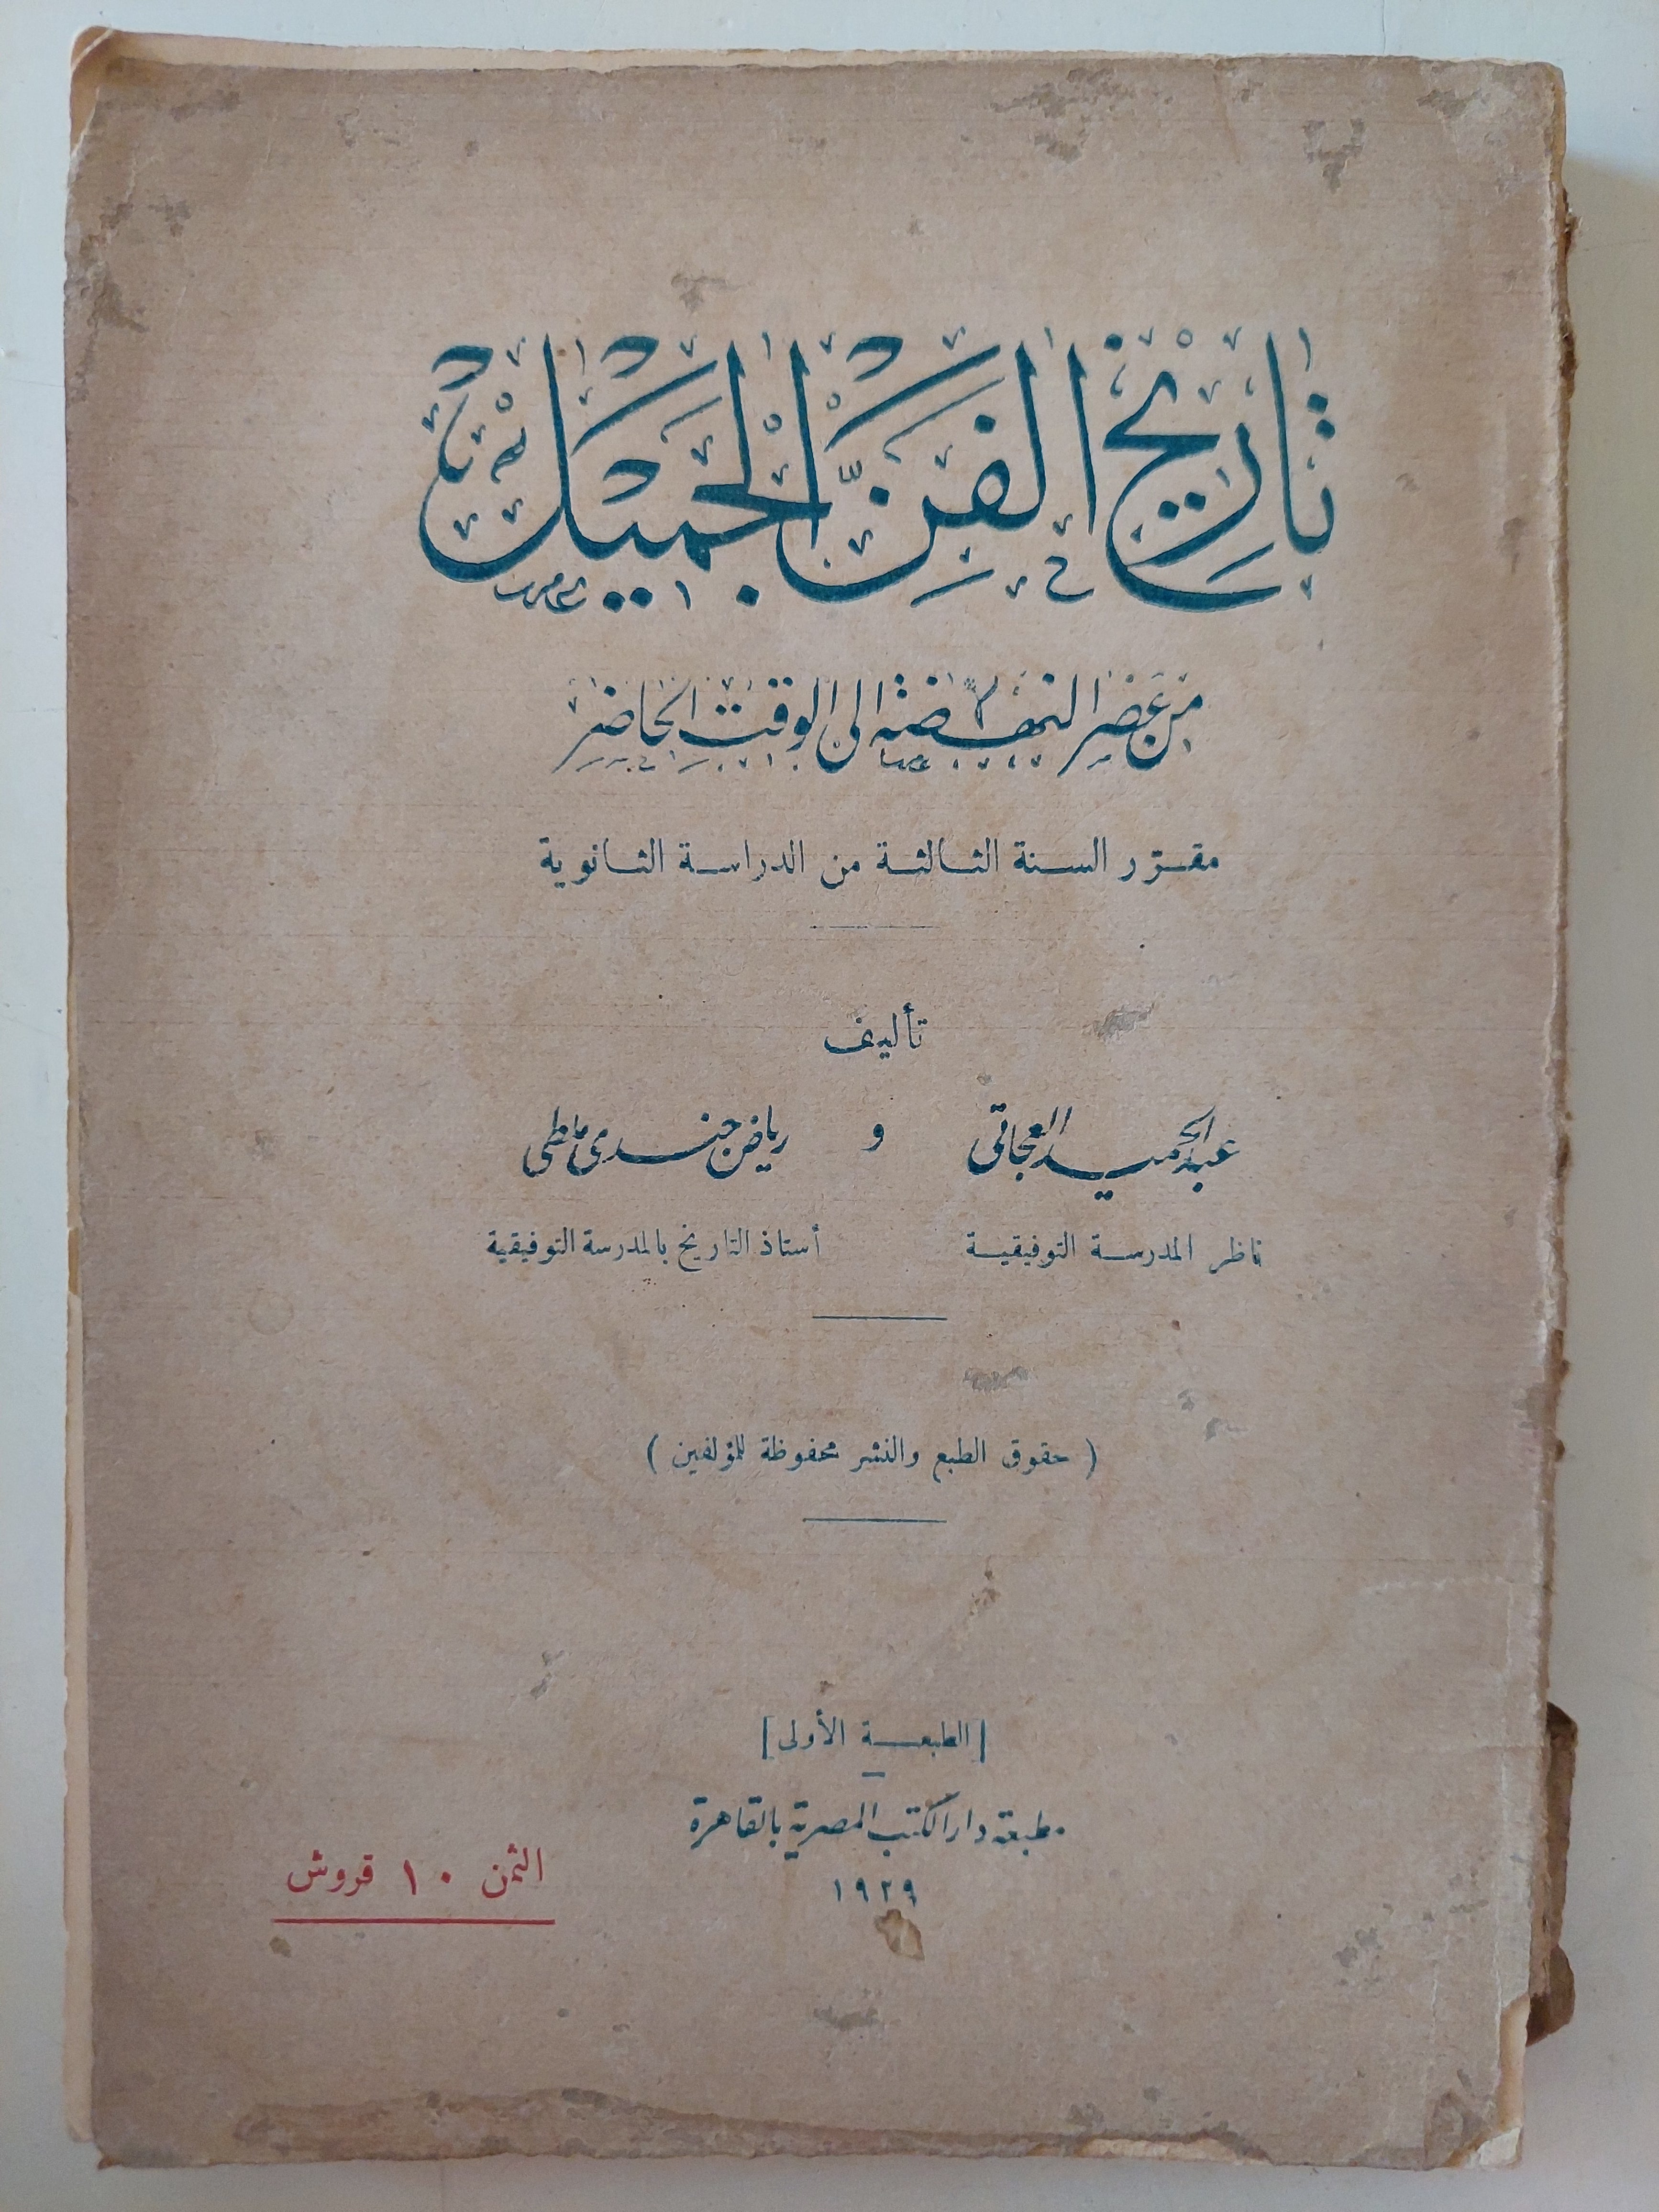 تاريخ الفن الجميل
من عصر النهضة الى الوقت الحاضر
مقرر السنة الثالثة من الدراسة الثانوية
تأليف
عبد الحميد العجاتى و رياض جندى ماطى
ناظر المدرسة التوفيقية أستاذ التاريخ بالمدرسة التوفيقية
( حقوق الطبع والنشر محفوظة للمؤلفين )
[الطبعة الأولى]
مطبعة دار الكتب المصرية بالقاهرة
١٩٢٩
الثمن ١٠ قروش